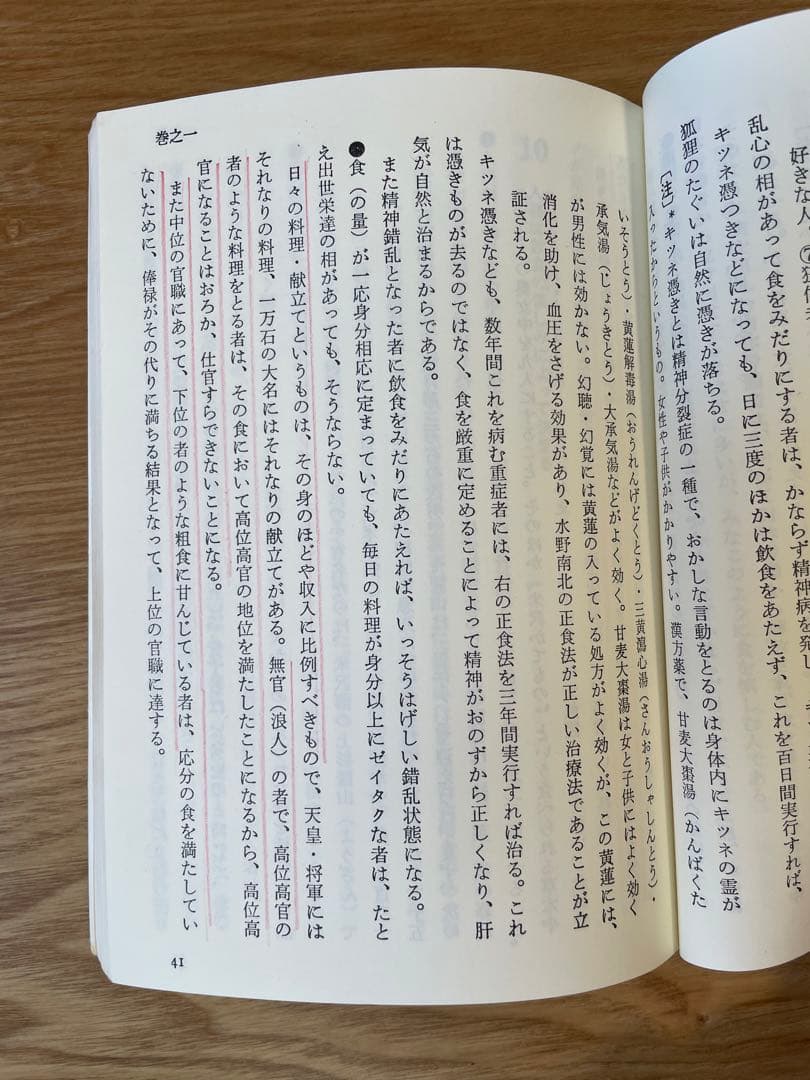 好きな人。⑦
乱心の相があって食をみだりにする者は、かならず精神病を発し、
キツネ憑つきなどになっても、日に三度のほかは飲食をあたえず、これを百日間実行すれば、
狐狸のたぐいは自然に憑きが落ちる。
〔注〕*キツネ憑きとは精神分裂症の一種で、おかしな言動をとるのは身体内にキツネの霊が
入ったからというもの。女性や子供がかかりやすい。漢方薬で、甘麦大棗湯（かんばくた
いそうとう）・黄蓮解毒湯（おうれんげどくとう）・三黄瀉心湯（さんおうしゃしんとう）・
承気湯（じょうきとう）・大承気湯などがよく効く。甘麦大棗湯は女と子供にはよく効く
が男性には効かない。幻聴・幻覚には黄蓮の入っている処方がよく効くが、この黄蓮には、
消化を助け、血圧をさげる効果があり、水野南北の正食法が正しい治療法であることが立
証される。
キツネ憑きなども、数年間これを病む重症者には、右の正食法を三年間実行すれば治る。これ
は憑きものが去るのではなく、食を厳重に定めることによって精神がおのずから正しくなり、肝
気が自然と治まるからである。
また精神錯乱となった者に飲食をみだりにあたえれば、いっそうはげしい錯乱状態になる。
●食（の量）が一応身分相応に定まっていても、毎日の料理が身分以上にゼイタクな者は、たと
え出世栄達の相があっても、そうならない。
日々の料理・献立てというものは、その身のほどや収入に比例すべきもので、天皇・将軍には
それなりの料理、一万石の大名にはそれなりの献立てがある。無官（浪人）の者で、高位高官の
者のような料理をとる者は、その食において高位高官の地位を満たしたことになるから、高位高
官になることはおろか、仕官すらできないことになる。
また中位の官職にあって、下位の者のような粗食に甘んじている者は、応分の食を満たしてい
ないために、俸禄がその代りに満ちる結果となって、上位の官職に達する。
巻之一
41